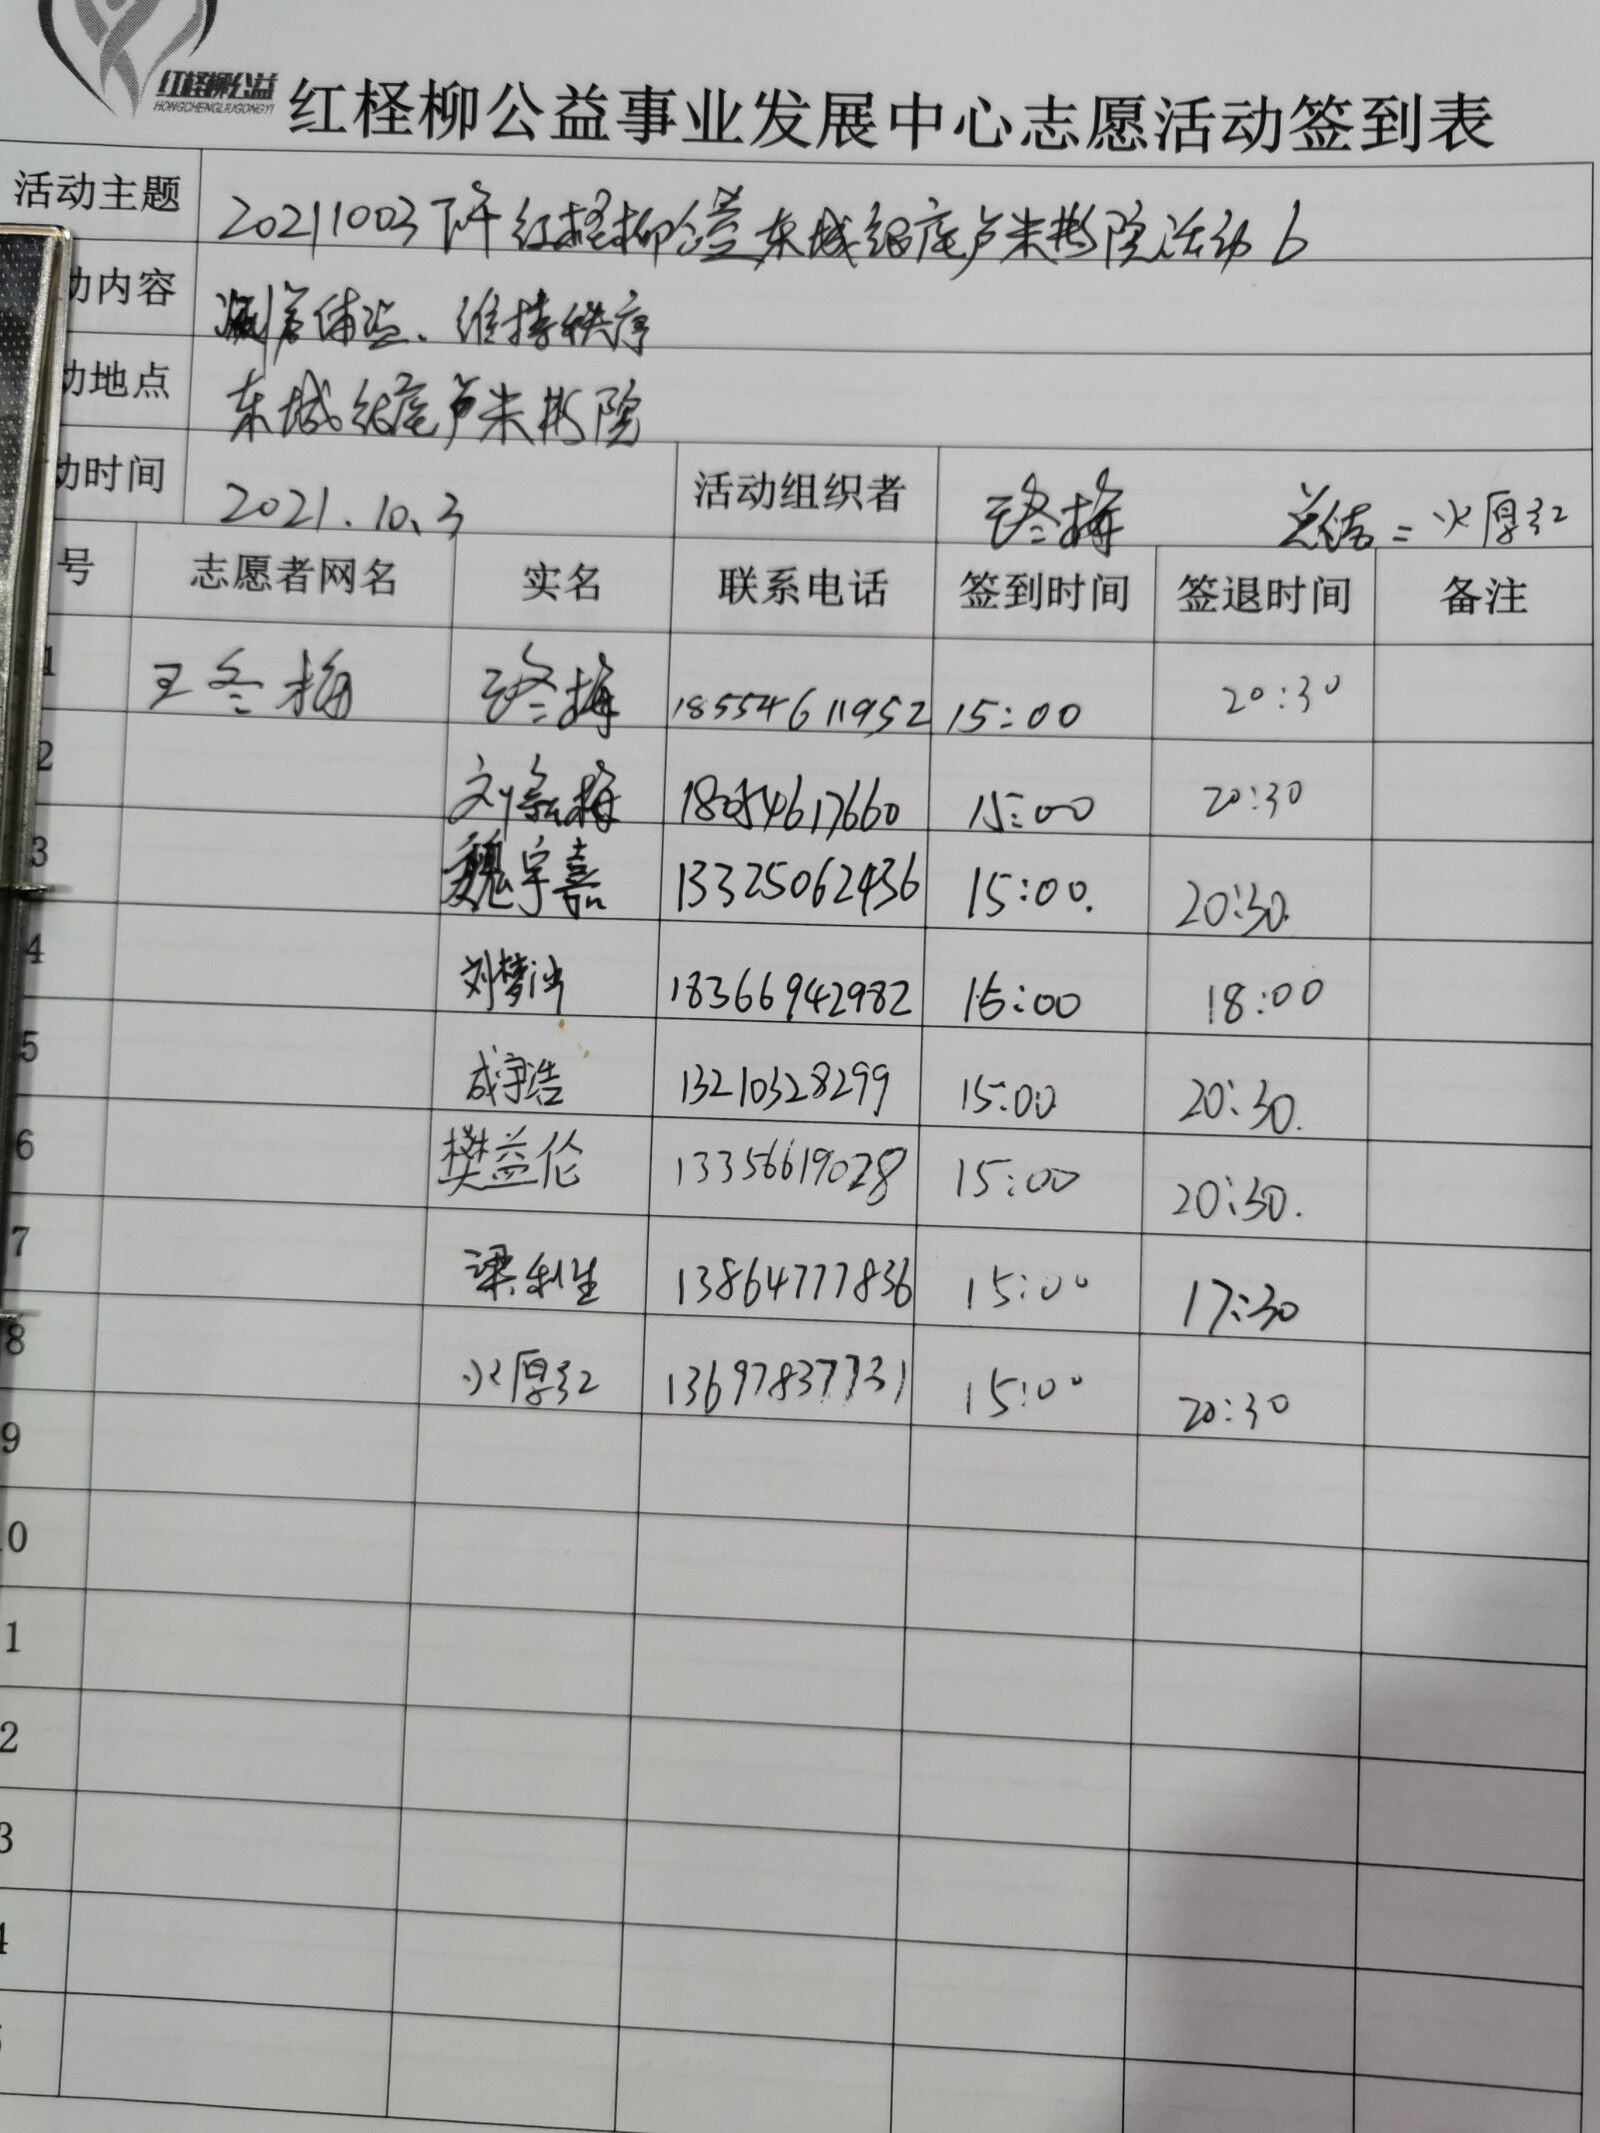 红柽柳公益
HONGCHENGLIUGONGYI
红柽柳公益事业发展中心志愿活动签到表
活动主题 20211003下午红柽柳公益东城银座卢米斯院活动6
动内容 测温体验、维持秩序
动地点 东城银座卢米斯院
动时间 2021.10.3 活动组织者 王冬梅 总结=火厚红
号 志愿者网名 实名 联系电话 签到时间 签退时间 备注
1 王冬梅 王冬梅 18554611952 15:00 20:30
2 18054617660 15:00 20:30
3 魏宇嘉 13325062436 15:00. 20:30.
4 刘梦冰 18366942982 15:00 18:00
5 成宇浩 13210328299 15:00 20:30.
6 樊益伦 13356619028 15:00 20:30.
7 梁利生 13864777836 15:00 17:30
8 火厚红 13697837731 15:00 20:30
9
0
1
2
3
4